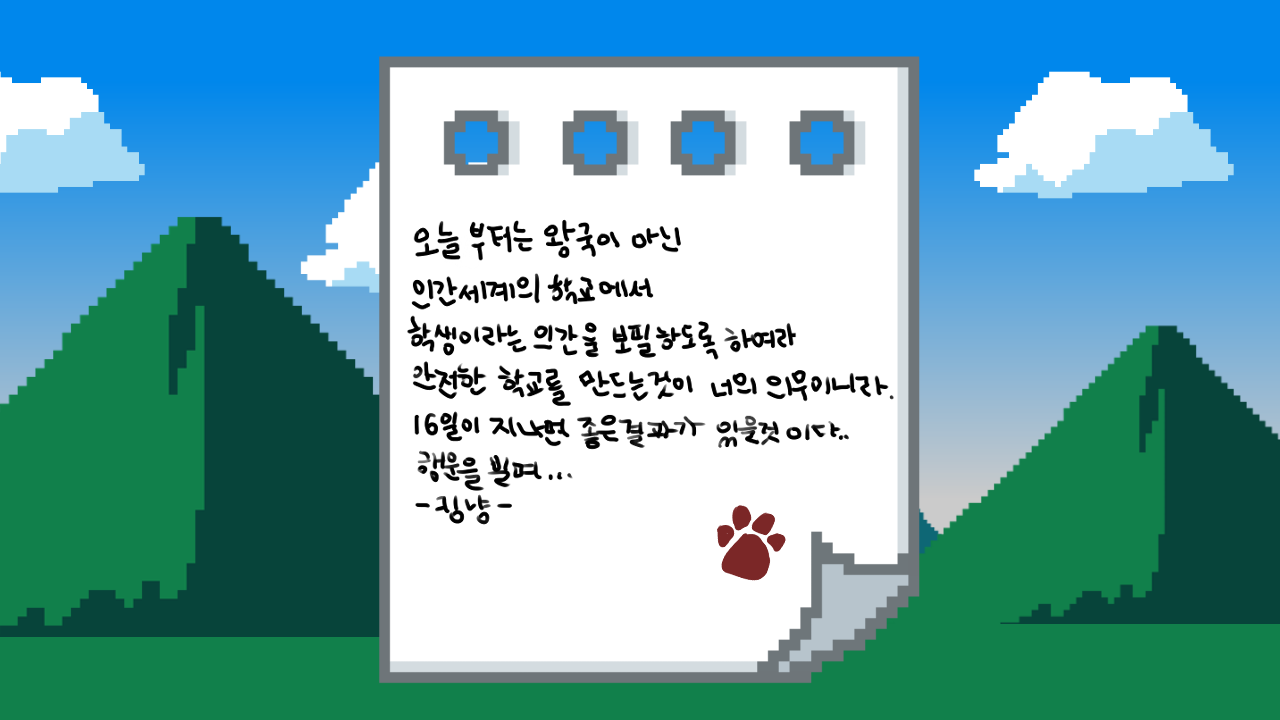 오늘 부터는 왕국이 아닌
인간세계의 학교에서
학생이라는 인간을 보필하도록 하여라
안전한 학교를 만드는것이 너의 의무이니라.
16일이 지나면 좋은결과가 있을것 이다..
행운을 빌며...
-킹냥-